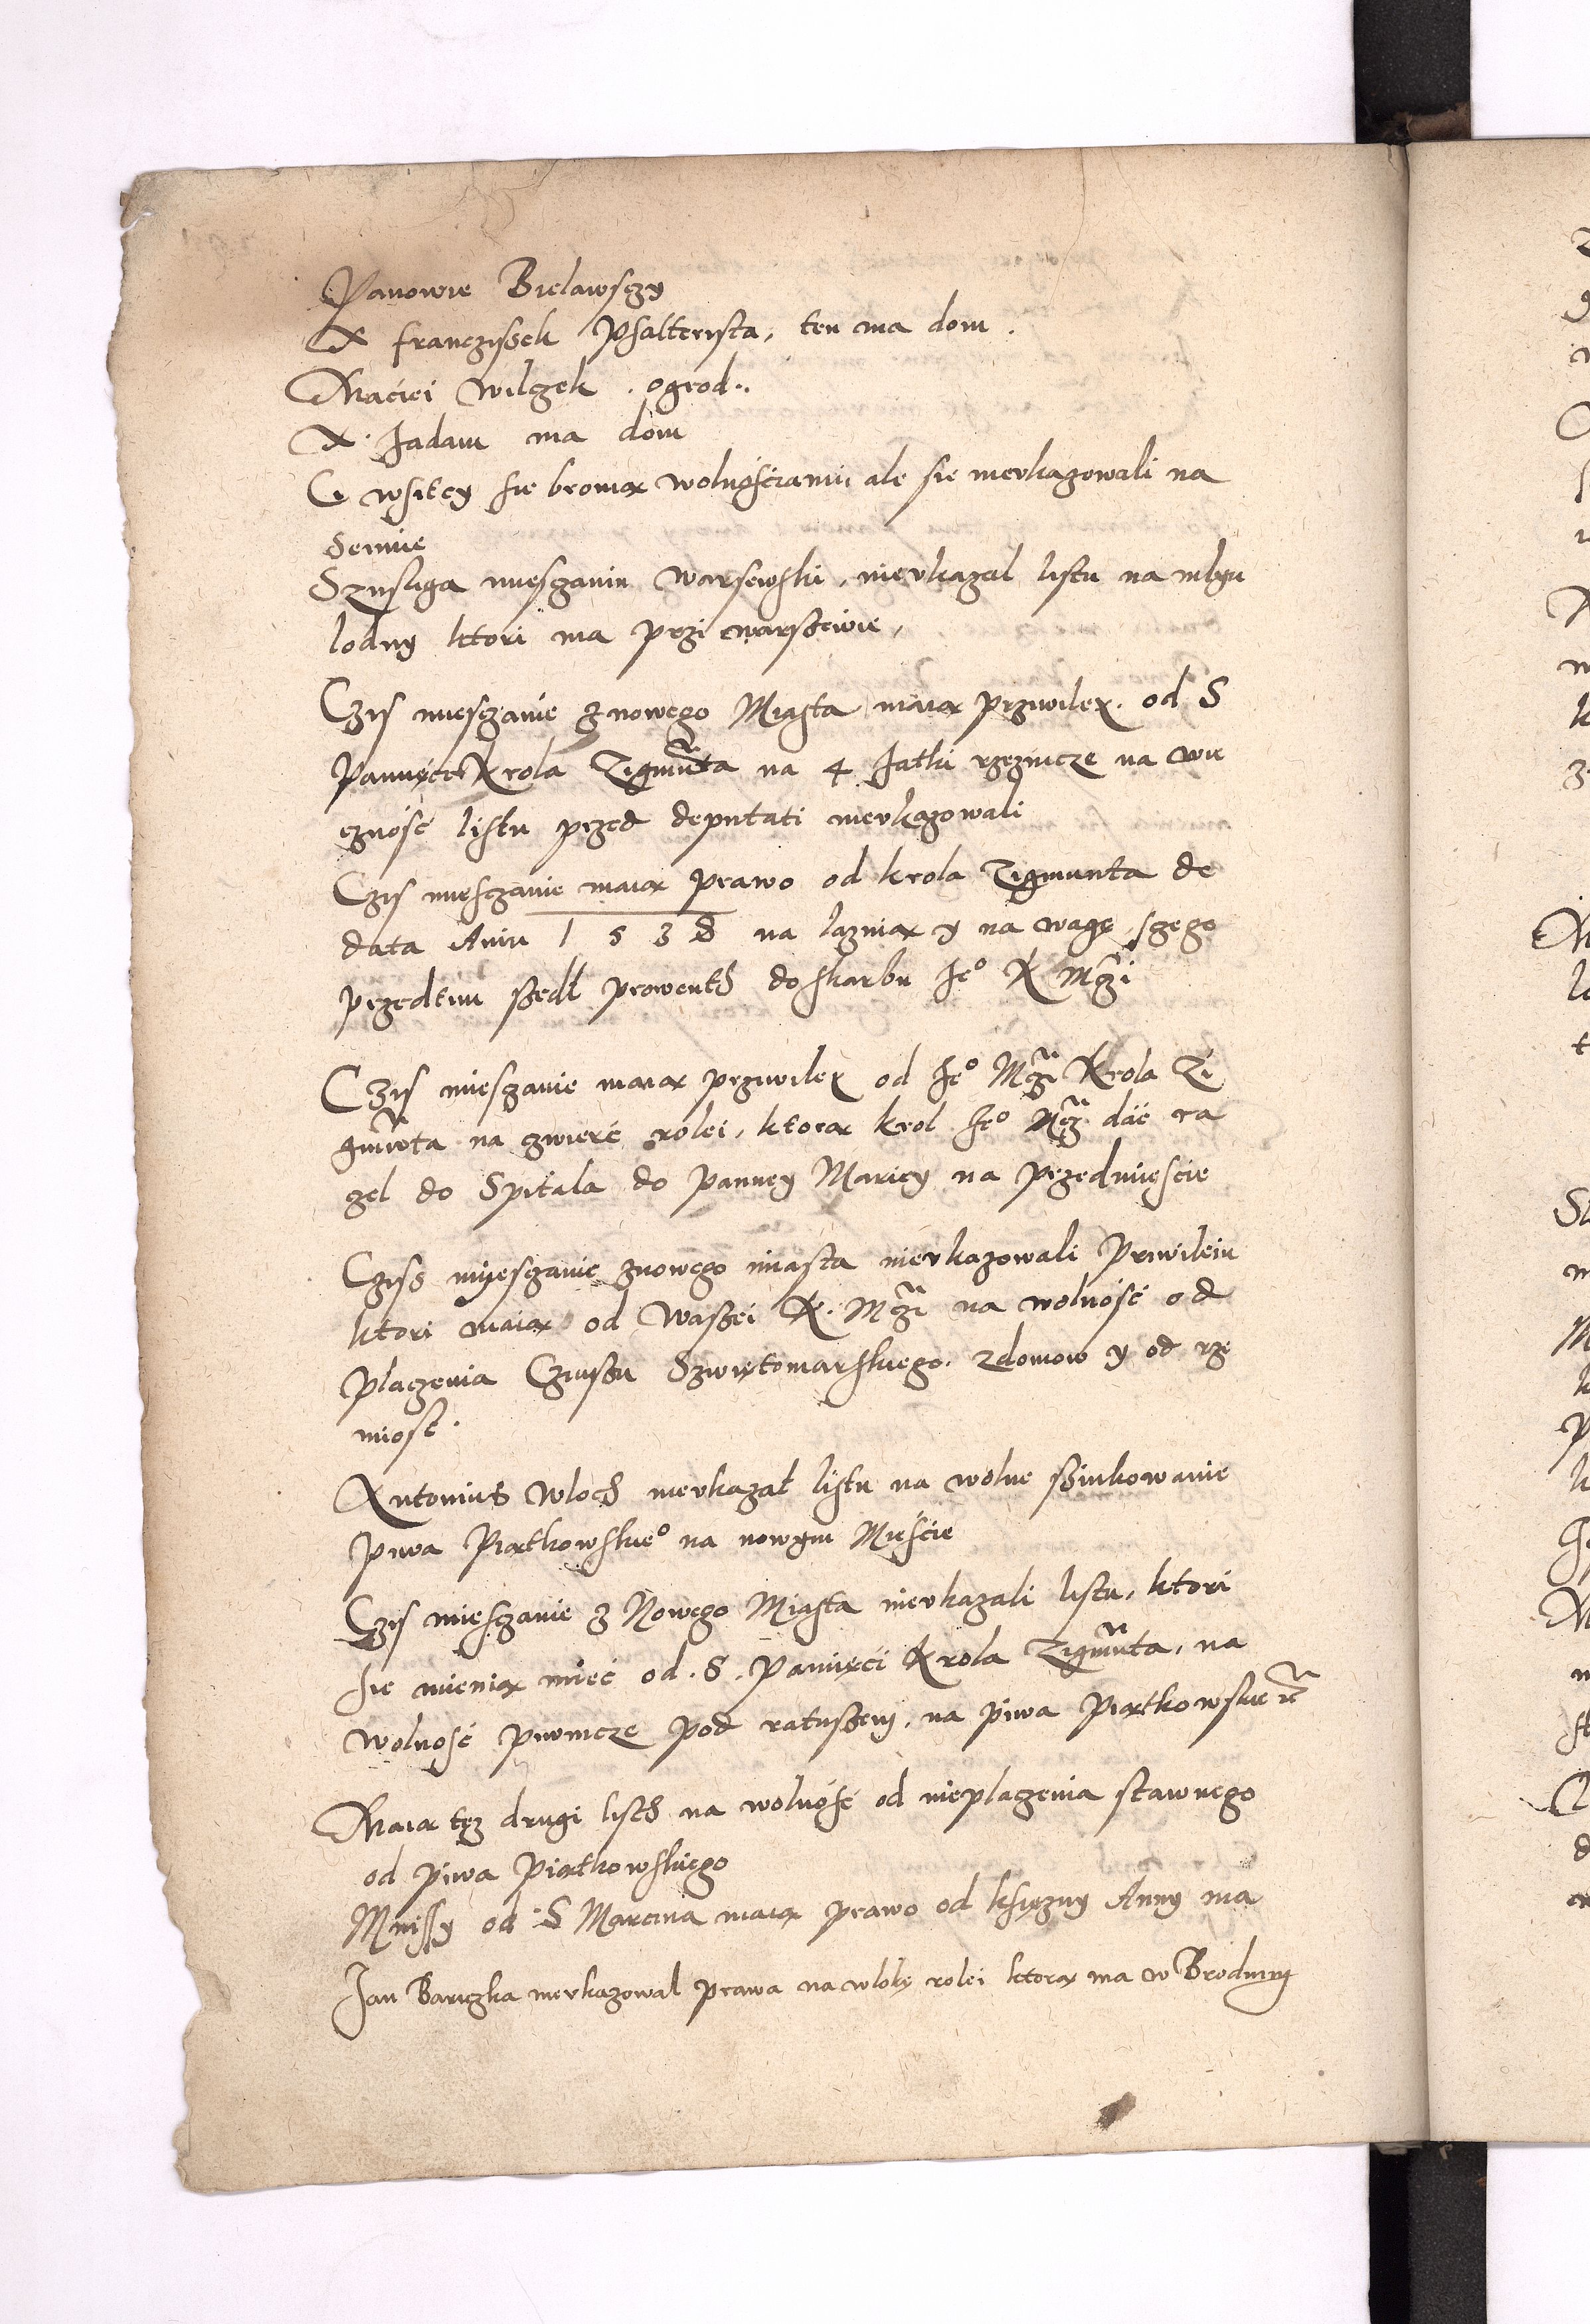 Panowie Bielawsczy
X franczissek Psalterista, ten ma dom.
Maciei Wilczek. ogrod.
X. Jadam ma dom
Ci wsitcy sie bronią wolnościami ale sie nieukazowali na
Semie
Szusliga miesczanin Warsewski, nieukazal listu na mlyn
lodny ktori ma przi warssewie,
Czis miesczanie z nowego Miasta maią prziwiley. od S
Pamięci Krola Zigmu͠ta na 4 Jatki rzeznicze na wie
cznośc listu przed deputati nieukazowali
Czis miesczanie maią prawo od krola Zigmunta de
data Anni 1538 na laznią y na wagę, czego
przedtim ssedl prowenth do skarbu Jeº K M͠czi
Czis miesczanie maią prziwiley od Jeº M͠czi Krola Zi
gmu͠ta na czwierć rolei, ktorą krol Jeº M͠cz dać ra
zel do Spitala do Panney Mariey na przedmieście
Cziss miyesczanie znowego miasta nieukazowali Priwileiu
ktori maią od Wassei K. M͠czi na wolność od
placzenia Czinssu Szwiętomarskiego. z domow y od rze
miosl.
Antonius Wloch nieukazal listu na wolne sszinkowanie
piwa Piątkowskieº na nowym Mieście
Czis miesczanie z Nowego Miasta nieukazali listu, ktori
sie mienią mieć od. S. Pamięci Krola Zigmu͠ta, na
wolność piwnicze pod ratussem, na piwa Piątkowskie
Maią tez drugi listh na wolnośc od nieplaczenia stawnego
od piwa Piątkowskiego
Mnissy od S Marcina maią prawo od księzny Anny ma
Jan Bariczka nieukazowal prawa na wlokę rolei ktorą ma w Brodnicy